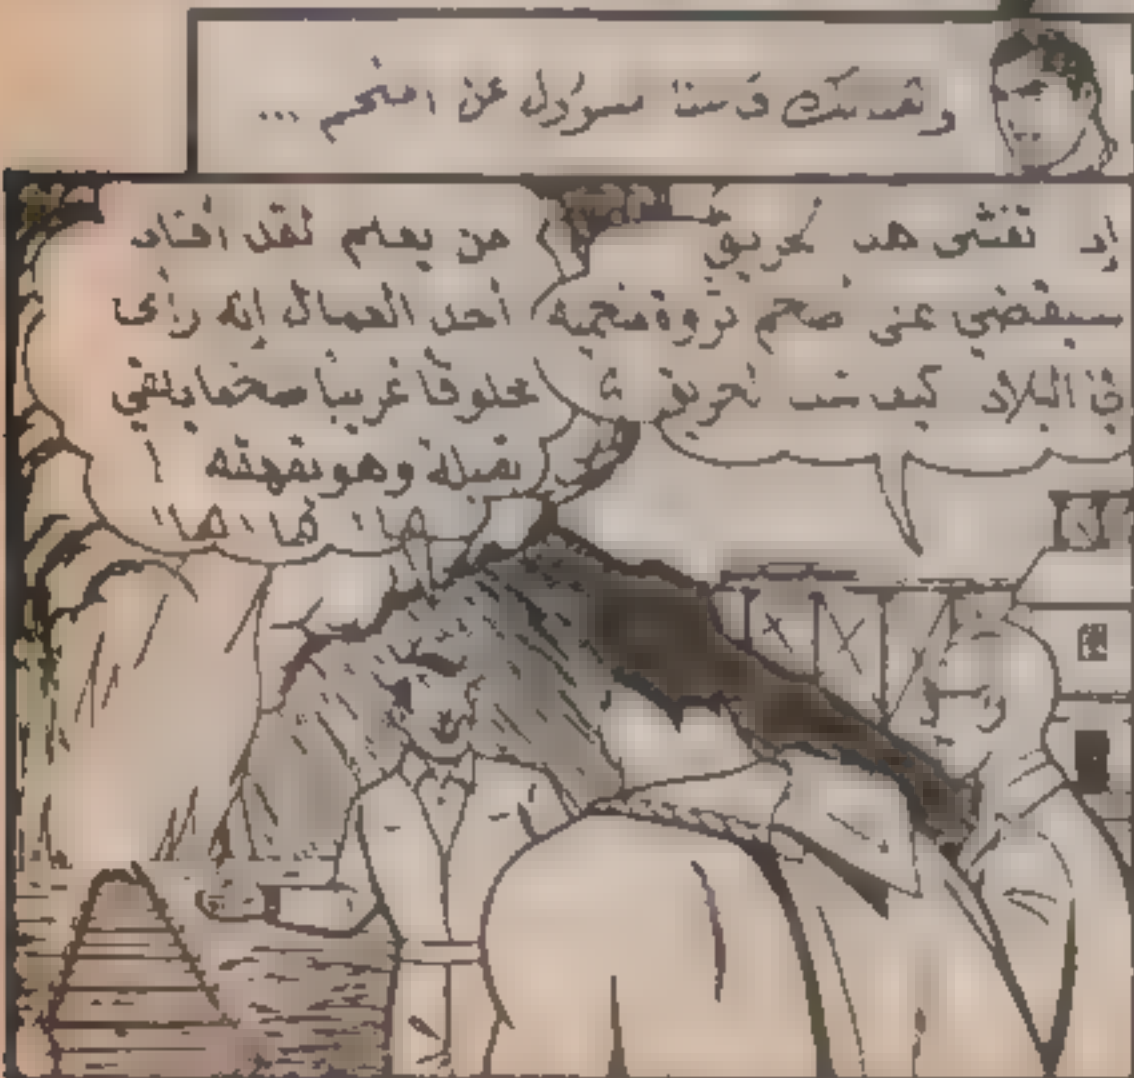 عن المنجم ...
إن تفشى هذا الحريق
سيقضي على أضخم ثروة منجمية
في البلاد كيف شب الحريق ؟
من يعلم لقد أفاد
أحد العمال إنه رأى
مخلوقا غريبا ضخما يلقي
بقنبلة وهو يقهقه
" ها " ها " ها "